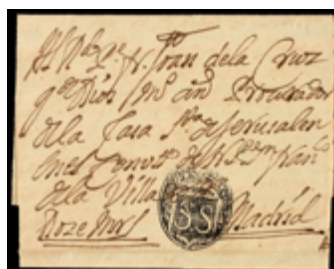 Al R.do P.e fr. Joan de la Cruz
g.e Dios m.s an.s Procurador
de la Casa S.ta de Jerusalen
en el Conv.to de S.n Fran.co
de la Villa
Doze Mrs SS Madrid